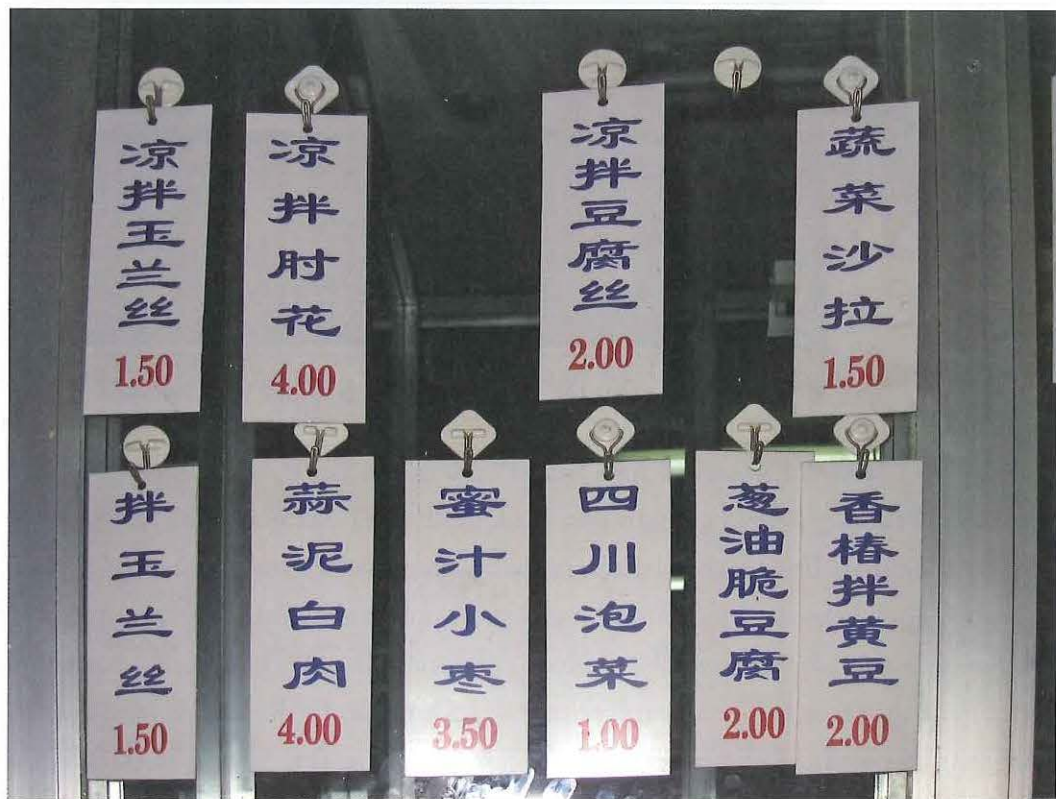 凉拌玉兰丝
1.50
凉拌肘花
4.00
凉拌豆腐丝
2.00
蔬菜沙拉
1.50
拌玉兰丝
1.50
蒜泥白肉
4.00
蜜汁小枣
3.50
四川泡菜
1.00
葱油脆豆腐
2.00
香椿拌黄豆
2.00